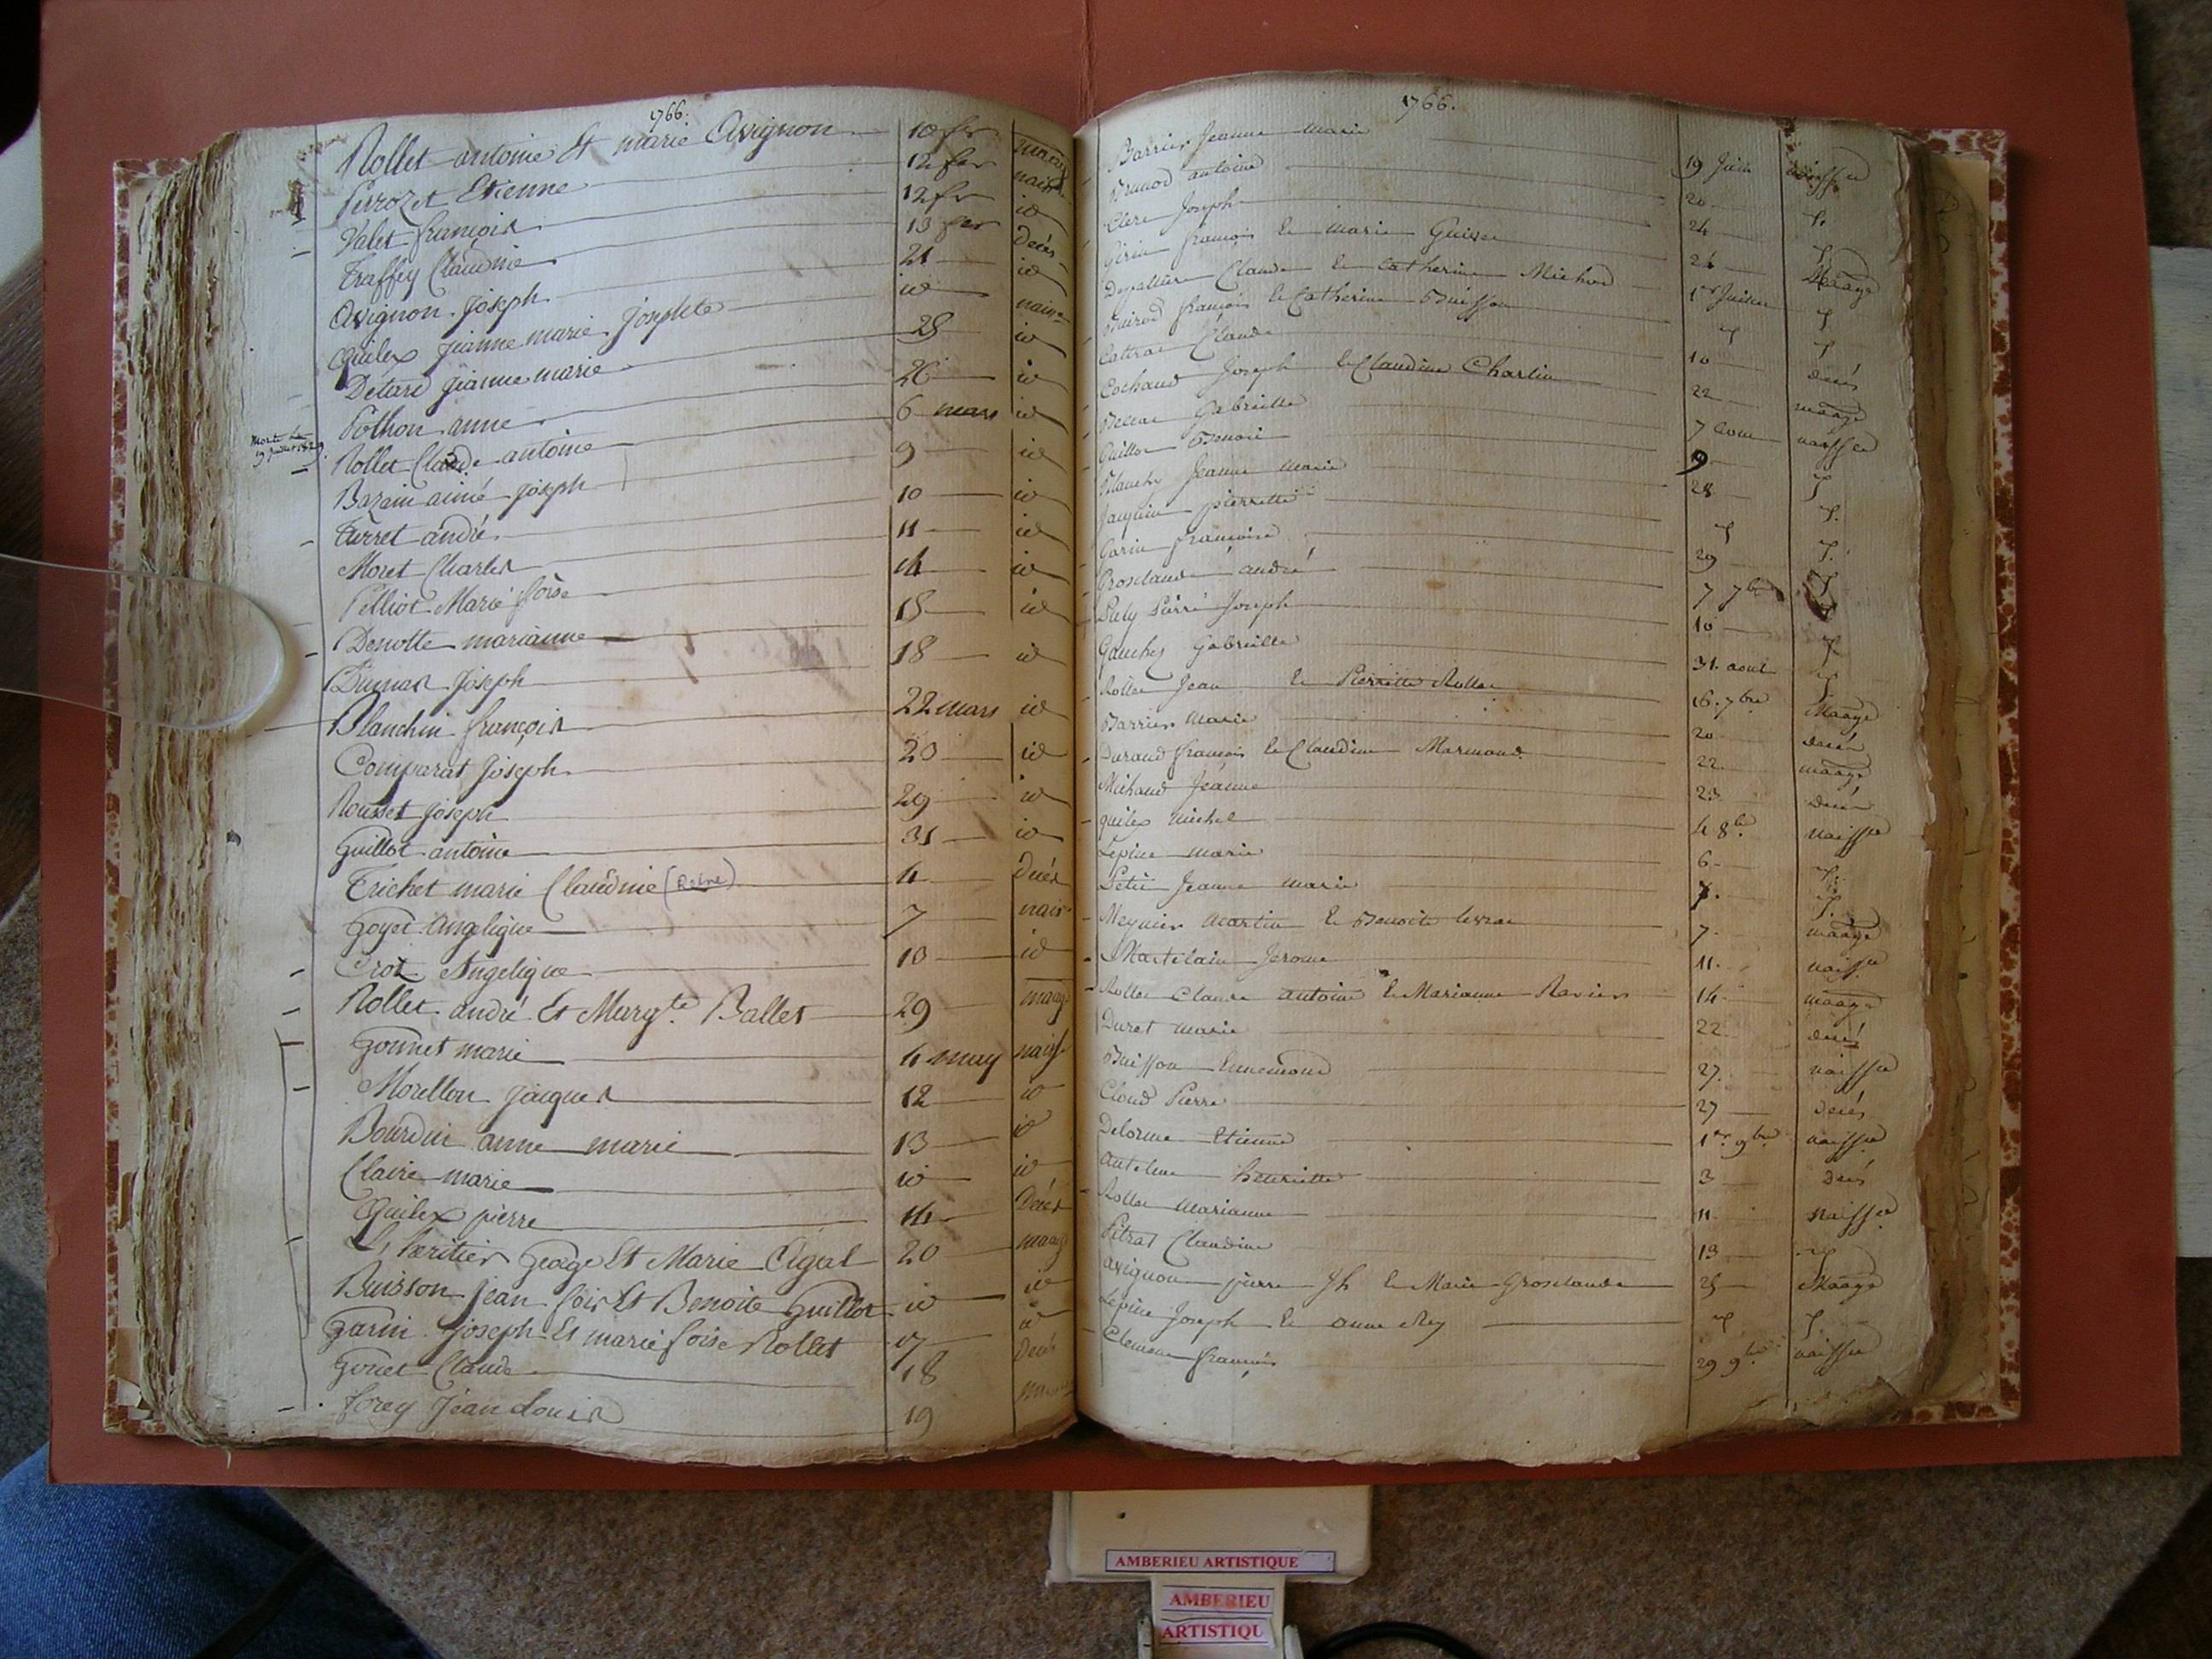 1766.
Rollet antoine Et marie Avignon 10 fer mariag
Perrozet Etienne 12 fer naiss
Valet françois 12 fr id
Traffey Claudine 13 fer decès
Avignon joseph 21 id
Quilex jeanne marie josephte id naiss
Detard jeanne marie 25 id
Pothon anne 26 id
Morte le 19 juillet 1829.
Rollet Claude antoine 6 mars id
Bazain aimé joseph 9 id
Turret andré 10 id
Moret Charles 11 id
Pelliot Marie foise 14 id
Denotte marianne 15 id
Dumas joseph 18 id
Blanchin françois 22 mars id
Comparat joseph 23 id
Rousset joseph 29 id
Guillot antoine 31 id
Trichet marie Claudine (Reine) 4 Decès
Goyet Angelique 7 nais
Croz Angelique 13 id
Rollet andré Et Margte Ballet 29 mariag
Gonnet marie 4 may naiss
Morellon jacques 12 id
Bourdin anne marie 13 id
Claire marie id id
Quilex pierre 14 Decès
L'heritier George Et Marie Cigal 20 mariag
Buisson jean fois Et Benoite Guillot id id
Garin joseph Et marie foise Rollet 17 id
Gonet Claude 18 Decès
forey jean Louis 19
1766.
Barrier jeanne marie 19 Juin naissce
Brunod antoine 20 J.
Clerc Joseph 24 J
Girin françois Et marie Guiset 24 Mariage
Depallier Claude Et Catherine Michod 1er Juillet J.
Buirod françois Et Catherine Buisson J J
Cattran Claude 10 decés
Cochaud Joseph Et Claudine Charlin 22 mariage
Gabrielle 7 aout naissce
Guillot Benoit 9 J
Blanchy Jeanne marie 28 J.
Jacquin pierrette J J.
Garin françoise 29 J
Grosclaude andré 7 7bre
Pely Pierre Joseph 10 J.
Gauchez Gabrielle 31. aout J
Rollet Jean Et Pierrette Rollet 16. 7bre Mariage
Barrier Marie 20 decés
Durand françois Et Claudine Marmand 22 mariage
Michaud Jeanne 23 decés
Quilex michel 4 8bre naissce
Lepine marie 6 J.
Petit Jeanne marie 7. J.
Meynier Martin Et Benoite levrat 7. mariage
Martelain Jerome 11. naissce
Rollet Claude antoine Et Marianne Ravier 14 mariage
Duret marie 22 decés
Buisson Ennemond 27. naissce
Cloud Pierre 27 decés
Delorme Etienne 1er 9bre naissce
Antelme henriette 3 decés
Rollet Marianne 11 Naissce
Pitrat Claudine 13 J
Avignon pierre Jh Et Marie Grosclaude 25 Mariage
Lepine Joseph Et anne Rey J J.
Clement françois 29 9bre naissce
AMBERIEU ARTISTIQUE
AMBERIEU
ARTISTIQU